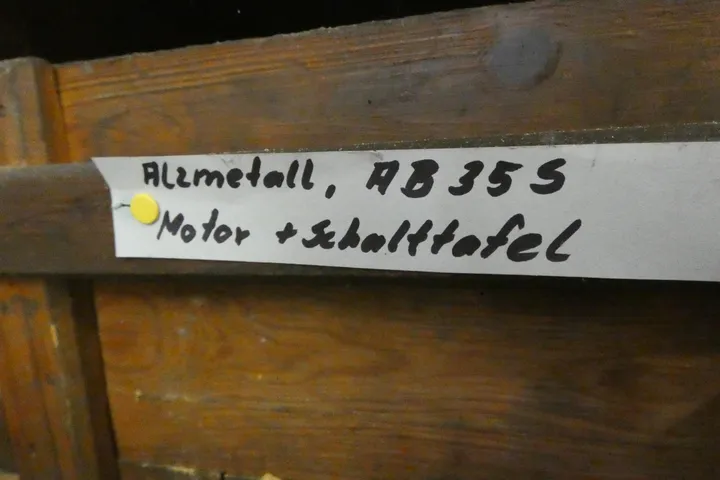 Alzmetall, AB 35 S
Motor + Schalttafel